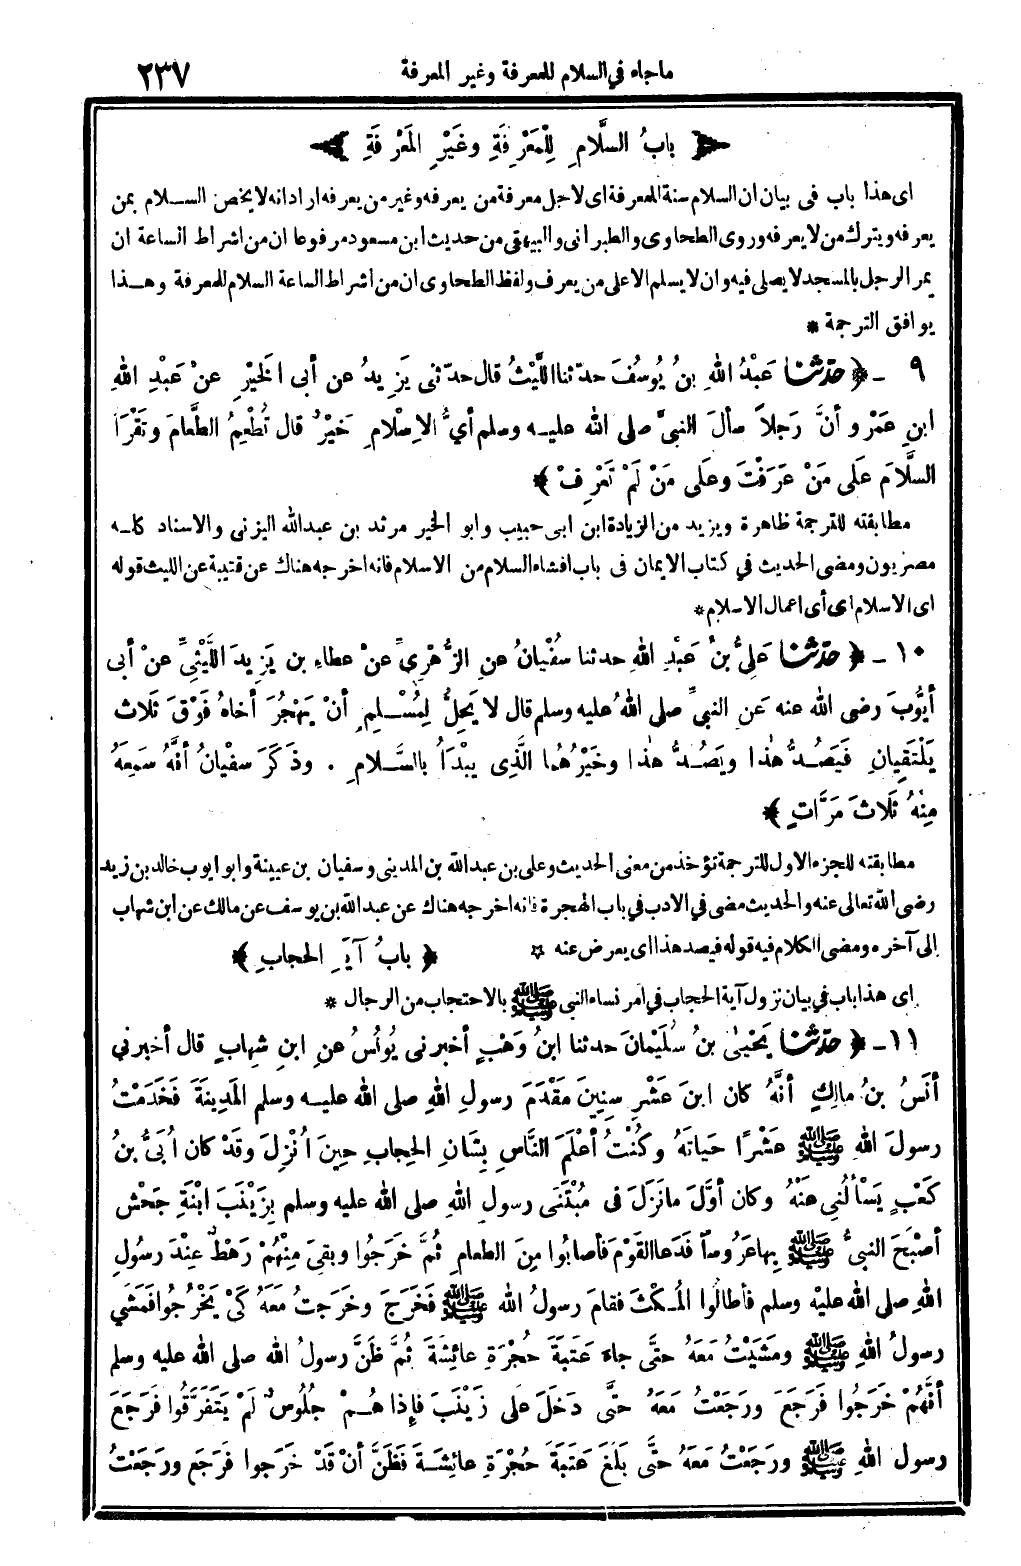 ماجاء في السلام للمعرفة وغير المعرفة ٢٣٧
﴿ بابُ السَّلَامِ لِلْمَعْرِفَةِ وغَيْرِ المَعْرِفَةِ ﴾
اى هذا باب فى بيان ان السلام سنة للمعرفة اى لاجل معرفة من يعرفه وغير من يعرفه اراد انه لا يخص السـلام بمن
يعرفه ويترك من لا يعرفه وروى الطحاوى والطبرانى والبيهقى من حديث ابن مسعود مرفوعا ان من اشراط الساعة ان
يمر الرجل بالمسجد لا يصلى فيه وان لا يسلم الا على من يعرف ولفظ الطحاوى ان من اشراط الساعة السلام للمعرفة وهـذا
يوافق الترجمة *
٩ ـ ﴿ حدّثنا عَبْدُ اللهِ بنُ يُوسُفَ حدثنا اللَّيْثُ قال حدّثنى يَزِيدُ عن أبى الخَيْرِ عنْ عَبْدِ اللهِ
ابنِ عَمْرٍو أنَّ رَجلاً سألَ النبىَّ صلى الله عليـه وسلم أىُّ الاِسْلَامِ خَيْرٌ قال تُطْعِمُ الطَّعامَ وتَقْرَأُ
السَّلَامَ عَلَى مَنْ عَرَفْتَ وعَلَى مَنْ لَمْ تَعْرِفْ ﴾
مطابقته للترجمة ظاهرة ويزيد من الزيادة ابن ابى حبيب وابو الخير مرثد بن عبدالله اليزنى والاسناد كلـه
مصريون ومضى الحديث في كتاب الايمان فى باب افشاء السلام من الاسلام فانه اخرجه هناك عن قتيبة عن الليث قوله
اى الاسلام اى أى اعمال الاسلام *
١٠ ـ ﴿ حدّثنا عَلِىُّ بنُ عَبْدِ اللهِ حدثنا سُفْيانُ عنِ الزُّهْرِىِّ عنْ عطاءِ بن يَزِيدَ اللَّيْثِىِّ عنْ أبى
أيُّوبَ رضى الله عنه عَنِ النبىِّ صلى اللهُ عليه وسلم قال لا يَحِلُّ لِمُسْـلِمٍ أنْ يَهْجُرَ أخاهُ فَوْقَ ثَلاث
يَلْتَقِيانِ فَيَصُـدُّ هٰذا ويَصُـدُّ هٰذا وخَيْرُهُما الَّذِى يبْدَأُ بالسَّـلامِ . وذَكَرَ سفْيانُ أنَّهُ سَمِعَهُ
مِنْهُ ثَلَاثَ مَرَّاتٍ ﴾
مطابقته للجزء الاول للترجمة تؤخذ من معنى الحديث وعلى بن عبدالله بن المدينى وسفيان بن عيينة وابو ايوب خالد بن زيد
رضى الله تعالى عنه والحديث مضى في الادب في باب الهجرة فانه اخرجه هناك عن عبدالله بن يوسف عن مالك عن ابن شهاب
إلى آخره ومضى الكلام فيه قوله فيصد هذا اى يعرض عنه ☆ ﴿ بابُ آيَةِ الحجابِ ﴾
اى هذا باب في بيان نزول آية الحجاب في امر نساء النبى ﷺ بالاحتجاب من الرجال *
١١ ـ ﴿ حدّثنا يَحْيىٰ بنُ سُلَيْمانَ حدثنا ابنُ وَهْبٍ أخبرنى يُونُسُ عنِ ابنِ شِهابٍ قال أخبرنى
أنَسُ بنُ مالِكٍ أنَّهُ كان ابنَ عَشْرِ سِنِينَ مَقْدَمَ رسولِ اللهِ صلى الله عليـه وسلم المَدِينَةَ فَخَدَمْتُ
رسولَ اللهِ ﷺ عَشْرًا حَياتَهُ وكُنْتُ أعْلَمَ النَّاسِ بِشَانِ الحِجابِ حِينَ اُنْزِلَ وقَدْ كان اُبَىُّ بنُ
كَعْبٍ يَسْألُنِى عنْهُ وكان أوَّلَ مانَزَلَ فى مُبْتَنَى رسولِ اللهِ صلى الله عليه وسلم بِزَيْنَبَ ابْنَةِ جَحْشٍ
أصْبَحَ النبىُّ ﷺ بِها عَرُوساً فَدَعا القَوْمَ فأصابُوا مِنَ الطعامِ ثُمَّ خَرَجُوا وبقِىَ مِنْهُمْ رَهْطٌ عِنْدَ رسُولِ
اللهِ صلى الله عليْه وسلم فأطالُوا المُـكْثَ فقامَ رسولُ الله ﷺ فَخَرَجَ وخَرَجتُ مَعَهُ كَىْ يَخْرُجُوا فمَشَى
رسولُ اللهِ ﷺ ومَشَيْتُ مَعَهُ حتَّى جاءَ عَتَبَةَ حُجْرَةِ عائِشَةَ ثُمَّ ظَنَّ رسولُ الله صلى الله عليه وسلم
أنَّهُمْ خَرَجُوا فَرَجَعَ ورَجَعْتُ معَهُ حتَّى دَخَلَ علَى زَيْنَبَ فإذا هُـمْ جُلُوسٌ لَمْ يَتَفَرَّقُوا فرَجَعَ
رسول اللهِ ﷺ ورَجَعْتُ مَعَهُ حتَّى بَلَغَ عَتَبَةَ حُجْرَةِ عائِشـةَ فَظَنَّ أنْ قَدْ خَرَجوا فَرَجَع ورجَعْتُ